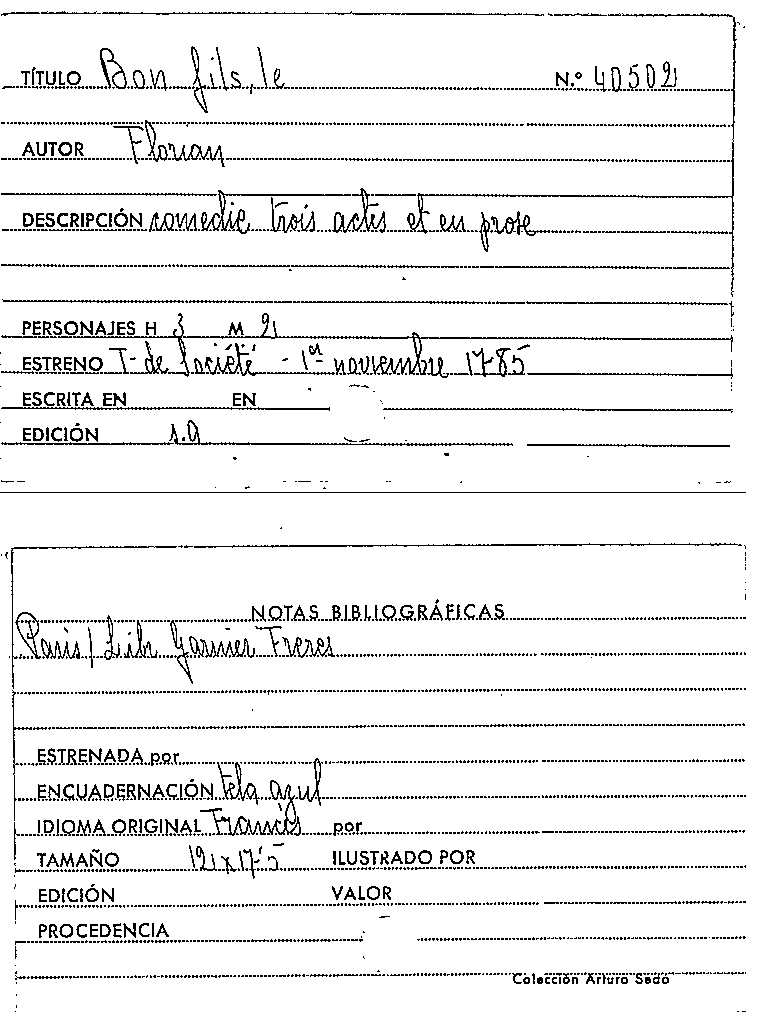 TÍTULO Bon fils, le N.º 40502
AUTOR Florian
DESCRIPCIÓN comedie trois actes et en prose
PERSONAJES H 3 M 2
ESTRENO T- de Société - 1er noviembre 1785
ESCRITA EN EN
EDICIÓN s.a
NOTAS BIBLIOGRÁFICAS
Paris / Libr Garnier Freres
ESTRENADA por
ENCUADERNACIÓN tela azul
IDIOMA ORIGINAL Francés por
TAMAÑO 12 x 17'5 ILUSTRADO POR
EDICIÓN VALOR
PROCEDENCIA
Colección Arturo Sedó